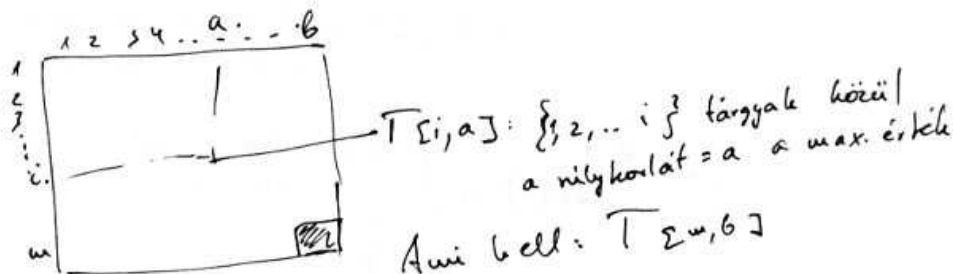 1 2 3 4 .. a . . . b
1
2
3
i
m
T[i,a]: {1,2,.. i} tárgyak közül
a súlykorlát = a a max. érték
Ami kell: T[m,b]